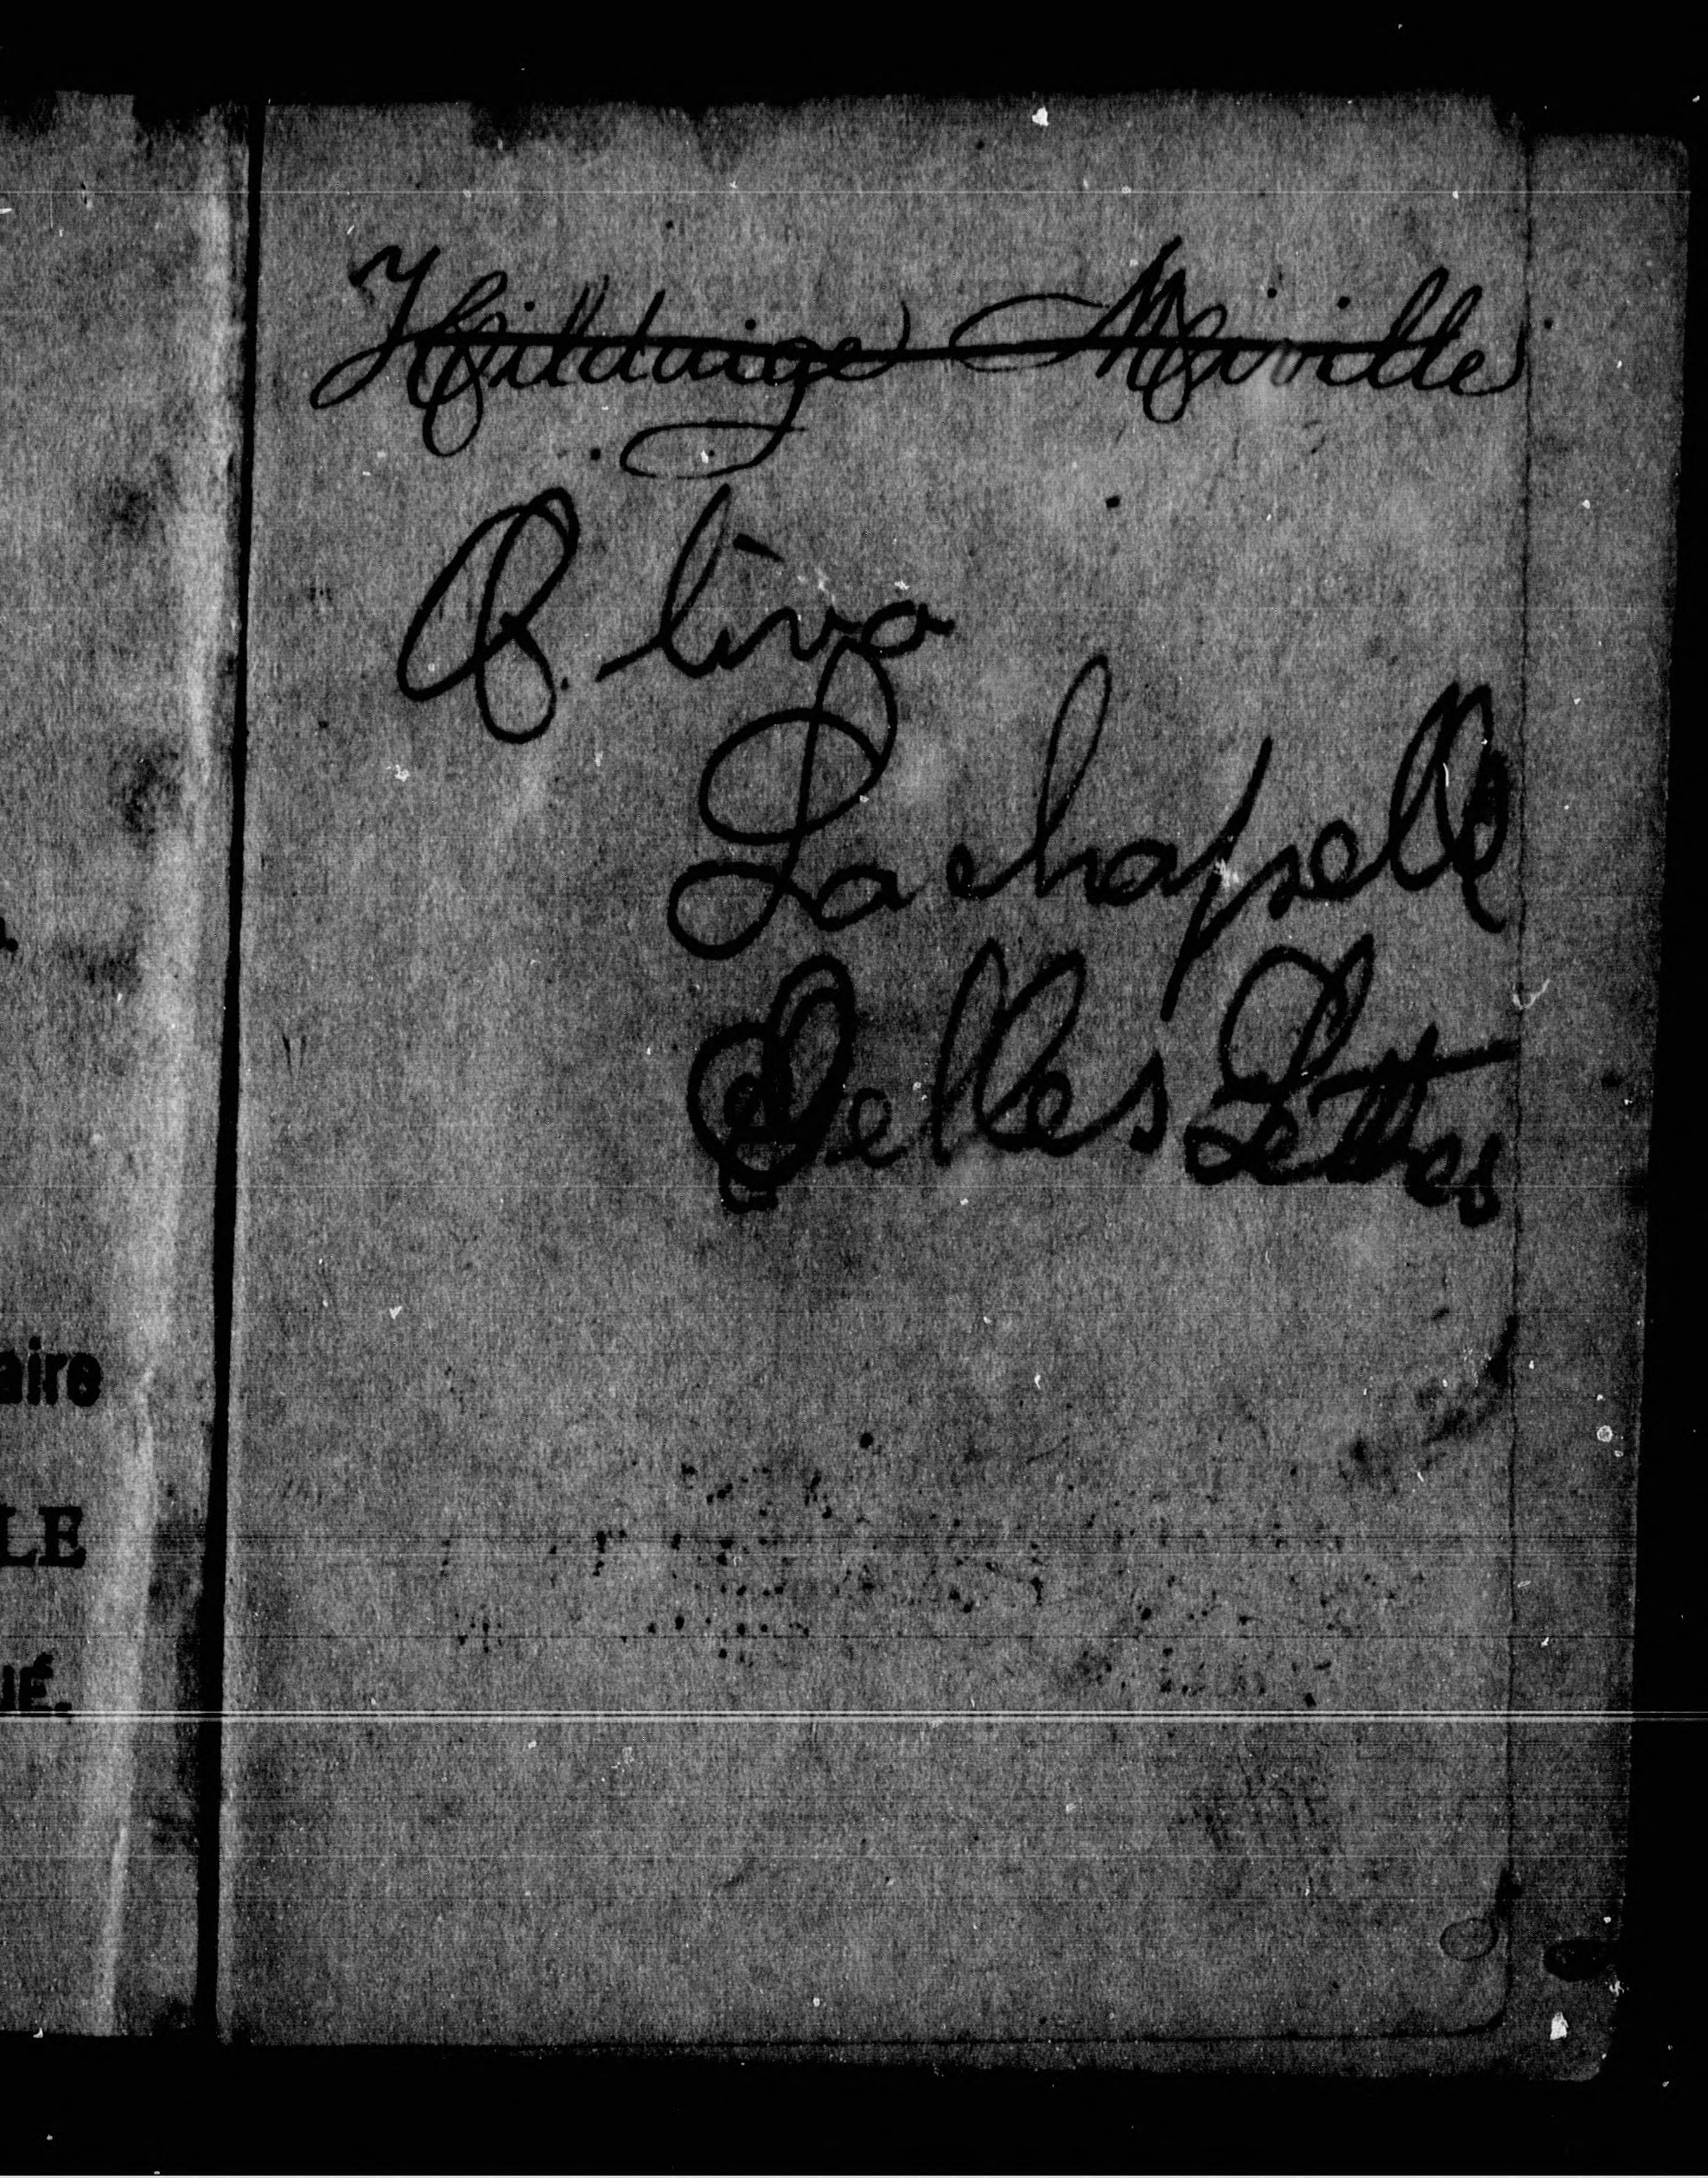 Hilduige Miville
A. Livo
Lachapelle
Belles Lettres
aire
LE
UÉ.